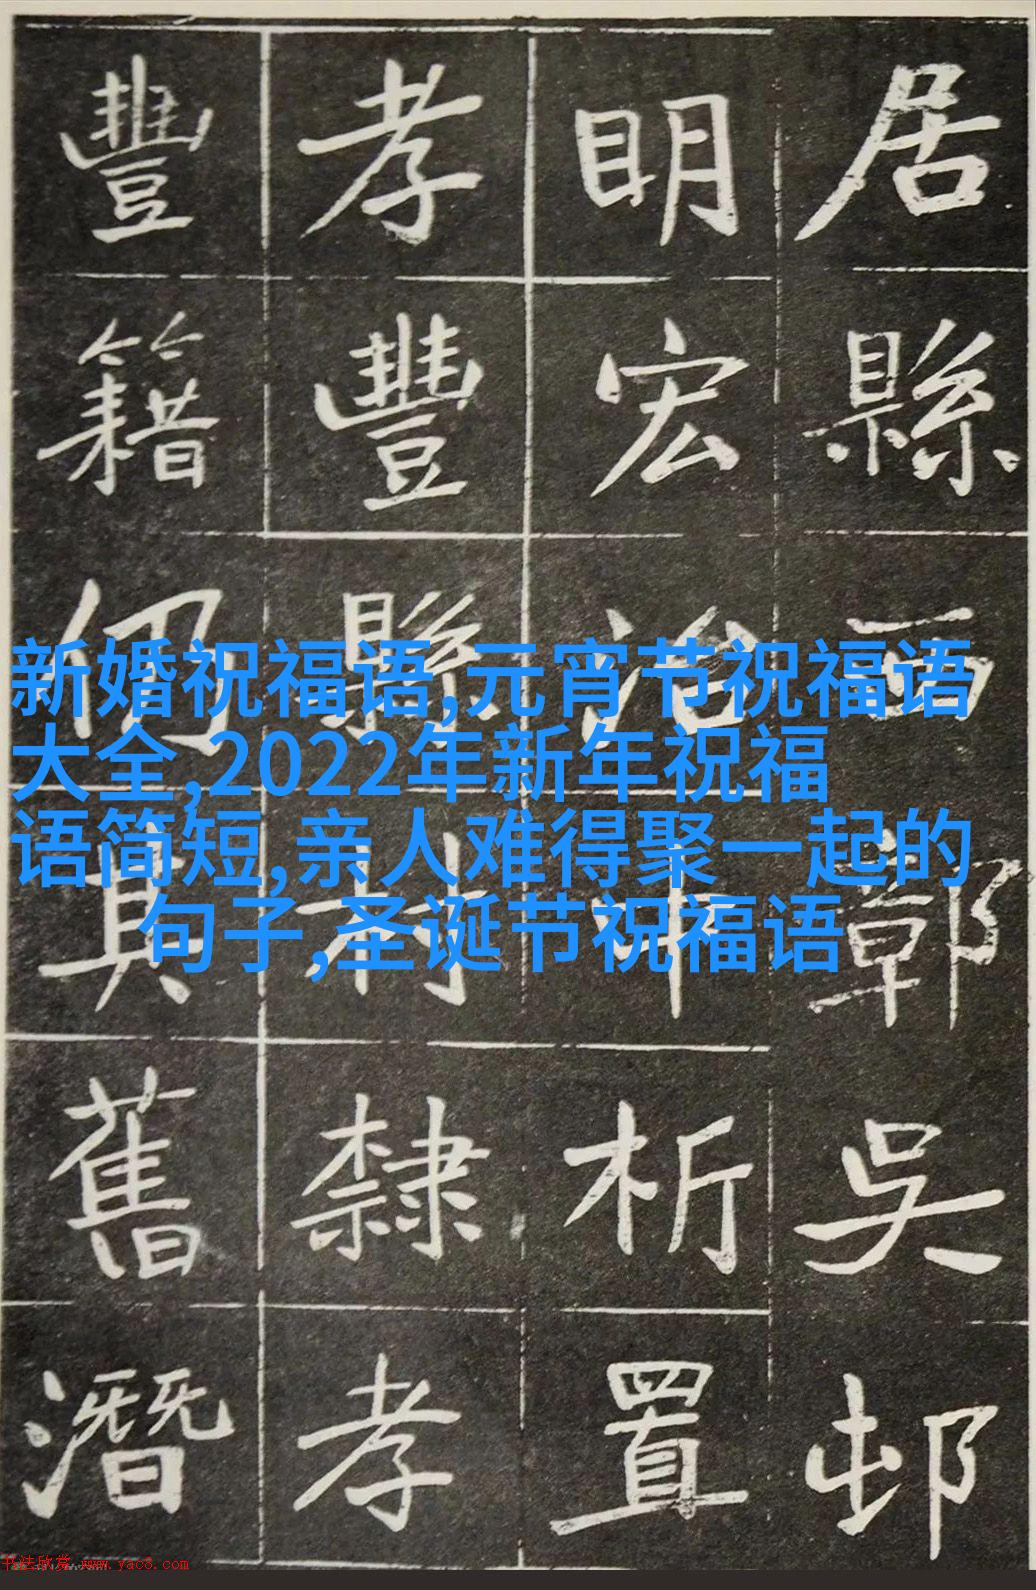 居縣西鄣吳邨
明宏治中析置
孝豐縣村隸孝
豐籍仍其舊潛
新婚祝福语,元宵节祝福语
大全,2022年新年祝福
语简短,亲人难得聚一起的
句子,圣诞节祝福语
书法欣赏 www.yac8.com